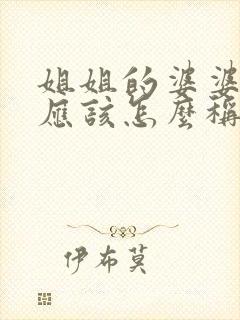 姐姐的婆婆
應該怎麼稱
伊布莫